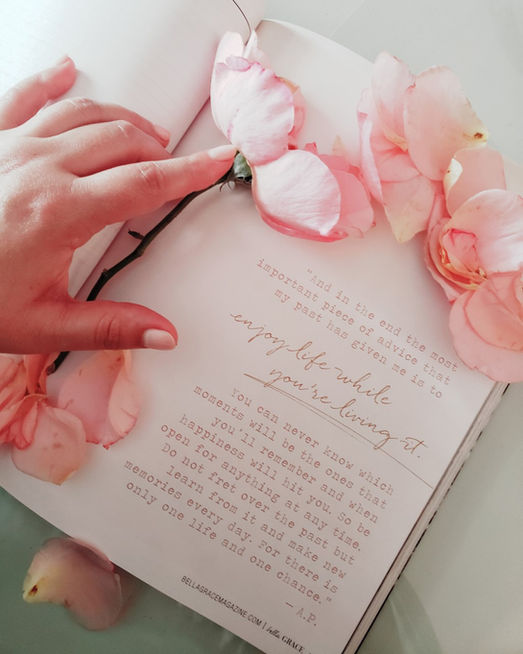 "And in the end the most
important piece of advice that
my past has given me is to
enjoy life while
you're living it.
You can never know which
moments will be the ones that
you'll remember and when
happiness will hit you. So be
open for anything at any time.
Do not fret over the past but
learn from it and make new
memories every day. For there is
only one life and one chance."
— A.P.
BELLAGRACEMAGAZINE.COM | bella GRACE